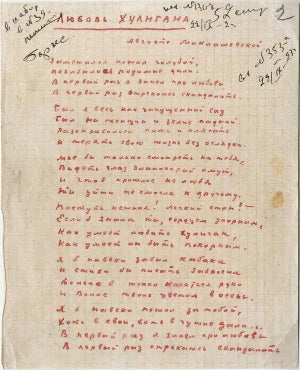 Любовь Хулигана
Августе Миклашевской
Заметался пожар голубой,
позабылись родимые дали.
В первый раз я запел про любовь
В первый раз отрекаюсь скандалить.
Был я весь как запущенный сад
Был на женщин и зелие падкий
Разонравилось пить и плясать
И терять свою жизнь без оглядки.
Мне бы только смотреть на тебя,
Видеть глаз злато-карий омут,
И чтоб прошлое не любя
Ты уйти не смогла к другому,
Поступь нежная! легкий стан!
Если б знала ты, сердцем упорным,
Как умеет любить хулиган,
Как умеет он быть покорным.
Я б навеки забыл кабаки
И стихи бы писать забросил
Только б тонко касаться руки
И волос твоих цветом в осень.
Я б навеки пошел за тобой,
Хоть в свои, хоть в чужие дали...
В первый раз я запел про любовь
В первый раз отрекаюсь скандалить